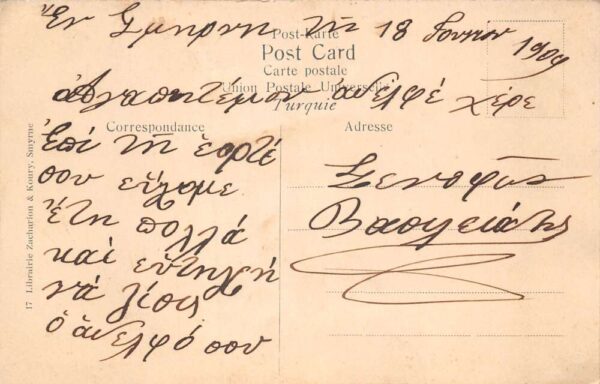 Ἐν Σμηρνη τῆ 18 Ἰουνιου 1909
Post-Karte
Post Card
Carte postale
Union Postale Universelle
Turquie
Ἀγαπητέμου ἀδελφέ χέρε
Correspondance
Adresse
Ἐπί τῆ ἑορτέ
σου εὔχομε
ἔτη πολλά
καί εὐτηχή
νά ζίσις
ὁ ἀδελφό σου
Ξενοφῶν
Βασιλειάδης
17 Librairie Zacharion & Koury, Smyrne